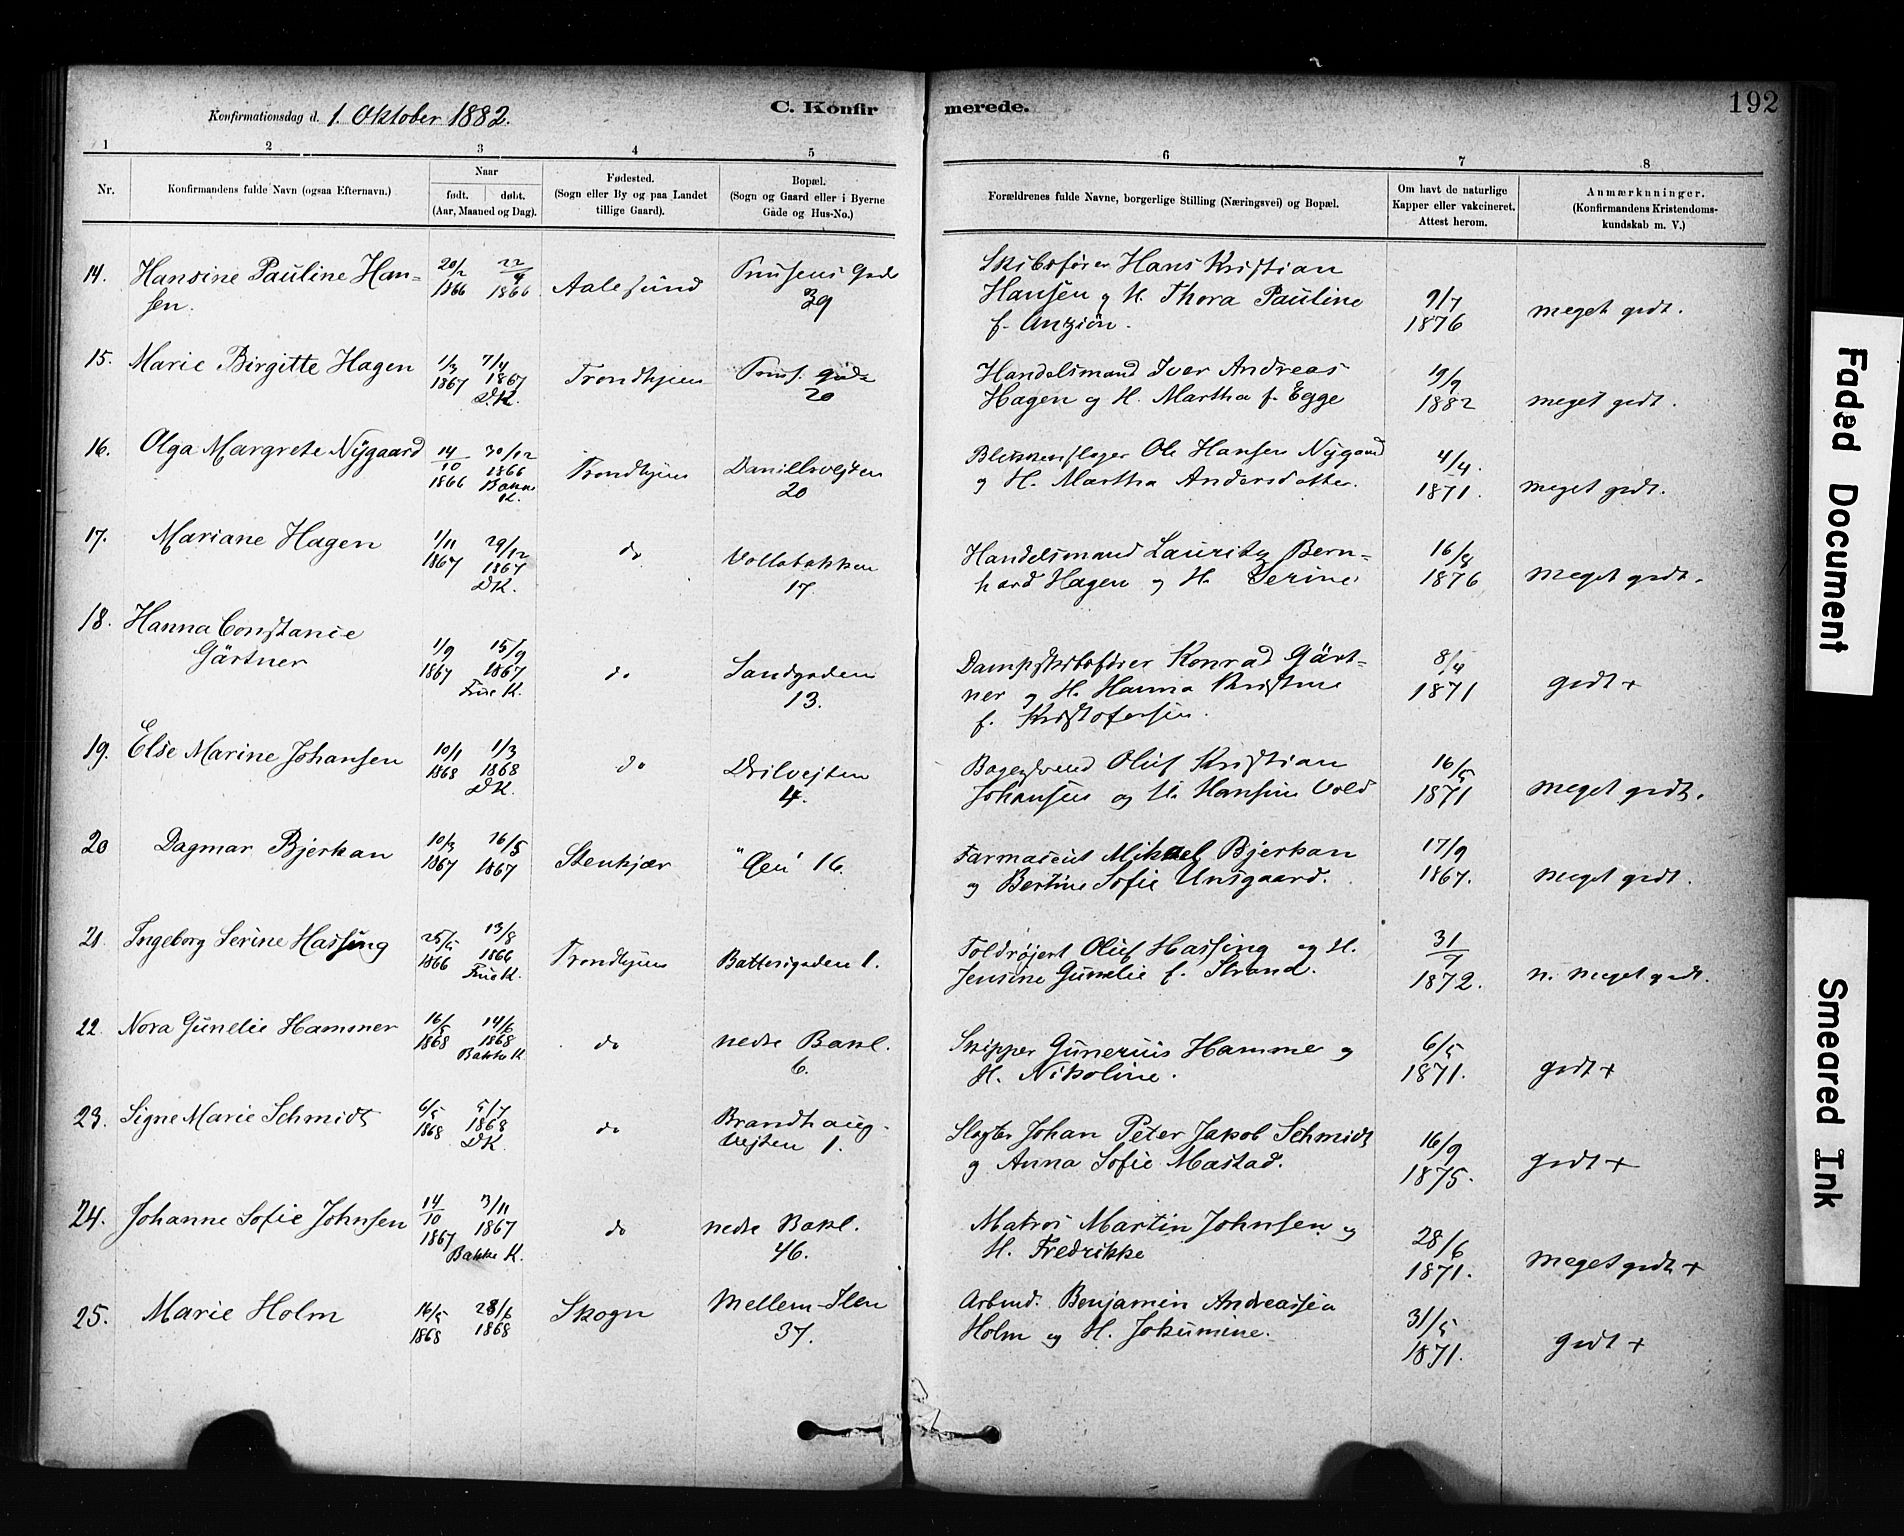 Konfirmationsdag d. 1. Oktober 1882.
C. Konfirmerede.
192
1 2 3 4 5 6 7 8
Nr.
Konfirmandens fulde Navn (ogsaa Efternavn.)
Naar
født. døbt.
(Aar, Maaned og Dag).
Fødested.
(Sogn eller By og paa Landet
tillige Gaard).
Bopæl.
(Sogn og Gaard eller i Byerne
Gade og Hus-No.)
Forældrenes fulde Navne, borgerlige Stilling (Næringsvei) og Bopæl.
Om havt de naturlige
Kapper eller vakcineret.
Attest herom.
Anmærkninger.
(Konfirmandens Kristendoms-
kundskab m. V.)
14. Hansine Pauline Han-
sen.
20/2 1866
22/4 1866
Aalesund
39
Skibsfører Hans Kristian
Hansen og H. Thora Pauline
f.
9/7
1876
meget godt.
15. Marie Birgitte Hagen
1/3 1867
7/4 1867
D.K.
Trondhjem
20
Handelsmand Iver Andreas
Hagen og H. Martha f. Egge
19/9
1882
meget godt.
16. Olga Margrete Nÿgaard
14/10 1866
30/12 1866
Bakke K.
Trondhjem
20
Ole Hansen Nÿgaard
og H. Martha Andersdatter.
4/4
1871.
meget godt.
17. Mariane Hagen
1/11 1867
29/12 1867
DK.
do
Vollabakken
17.
Handelsmand Lauritz Bern-
hard Hagen og H. Serine
16/8
1876
meget godt.
18. Hanna Constance
Gärtner
1/9 1867
15/9 1867
Frue K.
do
Sandgaden
13.
Dampskibsfører Konrad Gärt-
ner og H. Hanna Kristine
f. Kristofersen.
8/4
1871
godt +
19. Else Marine Johansen
10/1 1868
1/3 1868
DK.
do
4.
Oluf Kristian
Johansen og H. Hansine Vold
16/5
1871
meget godt.
20 Dagmar Bjerkan
10/3 1867
26/5 1867
Stenkjær
16.
Farmaceut Mikael Bjerkan
og Bertine Sofie
17/9
1867.
meget godt.
21. Ingeborg Serine Hassing
25/5 1866
13/8 1866
Frue K.
Trondhjem
Batterigaden 1.
Oluf Hassing og H.
Jensine Gunelie f. Strand.
31/7
1872.
n. meget godt.
22. Nora Gunelie Hammer
16/5 1868
14/6 1868
Bakke K.
do
nedre Bakl.
6.
Skipper Gunerius Hammer og
H. Nikoline.
6/5
1871.
godt +
23. Signe Marie Schmidt
6/5 1868
5/7 1868
DK.
do
Brandhaug-
vejten 1.
Slagter Johan Peter Jakob Schmidt
og Anna Sofie Mæstad.
16/9
1875.
godt +
24. Johanne Sofie Johnsen
14/10 1867
3/11 1867
Bakke K.
do
nedre Bakl.
46.
Matros Martin Johnsen og
H. Fredrikke
28/6
1871.
meget godt +
25. Marie Holm
16/5 1868
28/6 1868
Skogn
Mellem-Ilen
37.
Arbmd. Benjamin Andreassen
Holm og H. Jokumine.
31/5
1871.
godt +
Faded Document
Smeared Ink